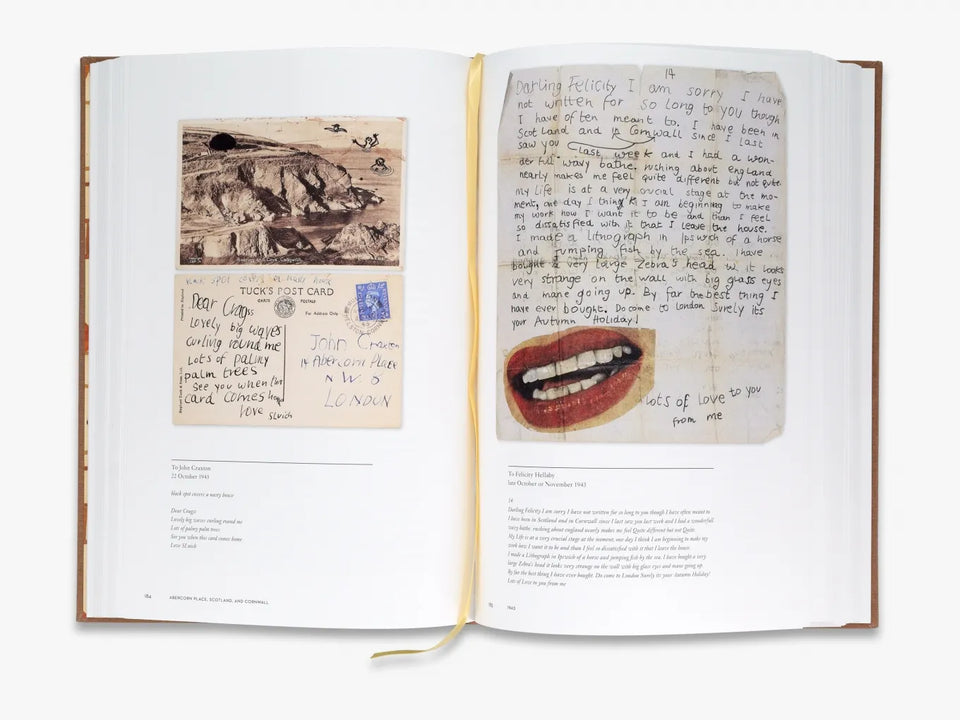 black spot covers a nasty house
TUCK'S POST CARD
CARTE POSTALE
For Address Only
Dear Craggs
Lovely big waves
curling round me
Lots of palmy
palm trees
See you when this
card comes home
love Slinish
John Craxton
14 Abercorn Place
N W. 8
LONDON
To John Craxton
22 October 1943
black spot covers a nasty house
Dear Craggs
Lovely big waves curling round me
Lots of palmy palm trees
See you when this card comes home
Love
184 ABERCORN PLACE, SCOTLAND, AND CORNWALL
14
Darling Felicity I am sorry I have
not written for so long to you though
I have often meant to. I have been in
Scotland and in Cornwall since I last
saw you last week and I had a won-
derfull wavy bathe. rushing about england
nearly makes me feel quite different but not quite.
my Life is at a very crucial stage at the mo-
ment, one day I think I am beginning to make
my work how I want it to be and than I feel
so dissatisfied with it that I leave the house.
I made a Litnograph in Ipswich of a horse
and jumping fish by the sea. I have
bought a very large Zebra's head it looks
very strange on the wall with big glass eyes
and mane going up. By far the best thing I
have ever bought. Do come to london Surely its
your Autumn Holiday!
Lots of love to you
from me
To Felicity Hellaby
late October or November 1943
14
Darling Felicity I am sorry I have not written for so long to you though I have often meant to
I have been in Scotland and in Cornwall since I last saw you last week and I had a wonderfull
wavy bathe. rushing about england nearly makes me feel Quite different but not Quite.
My Life is at a very crucial stage at the moment, one day I think I am beginning to make my
work how I want it to be and than I feel so dissatisfied with it that I leave the house.
I made a Lithograph in Ipswich of a horse and jumping fish by the sea. I have bought a very
large Zebra's head it looks very strange on the wall with big glass eyes and mane going up.
By far the best thing I have ever bought. Do come to London Surely its your Autumn Holiday!
Lots of Love to you from me
1943